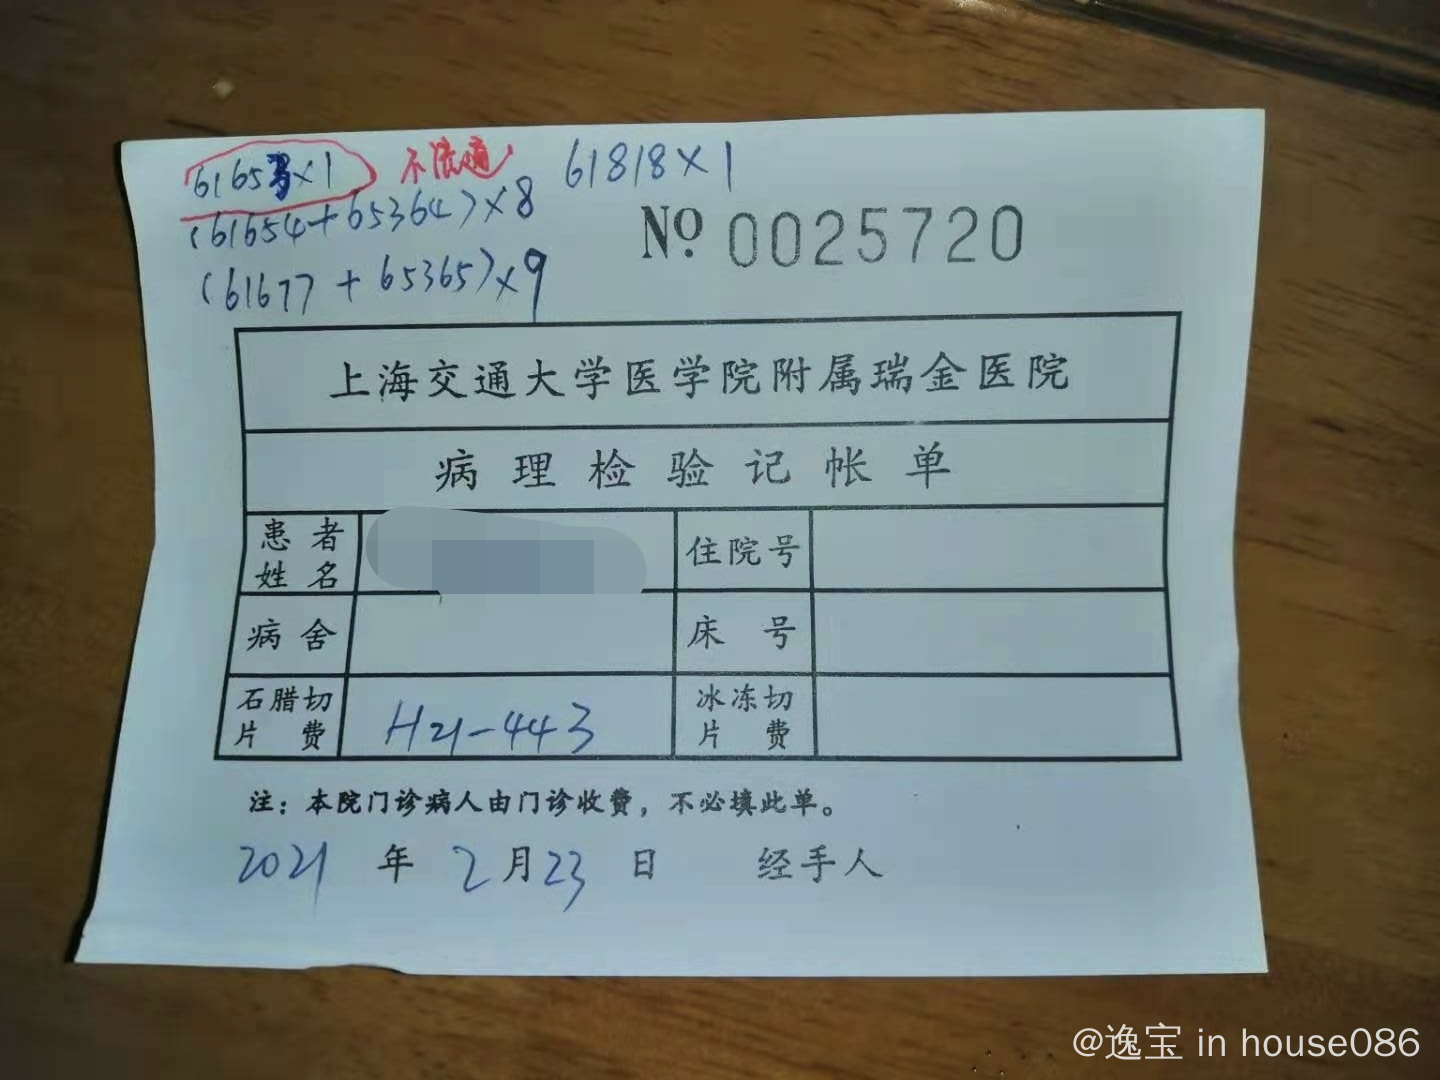 6165 ×1 不 61818×1
(61654+65364)×8
№ 0025720
(61677+65365)×9
上海交通大学医学院附属瑞金医院
病理检验记帐单
患者姓名 住院号
病舍 床号
石腊切片费 H21-443 冰冻切片费
注：本院门诊病人由门诊收费，不必填此单。
2021 年 2 月 23 日 经手人
@逸宝 in house086